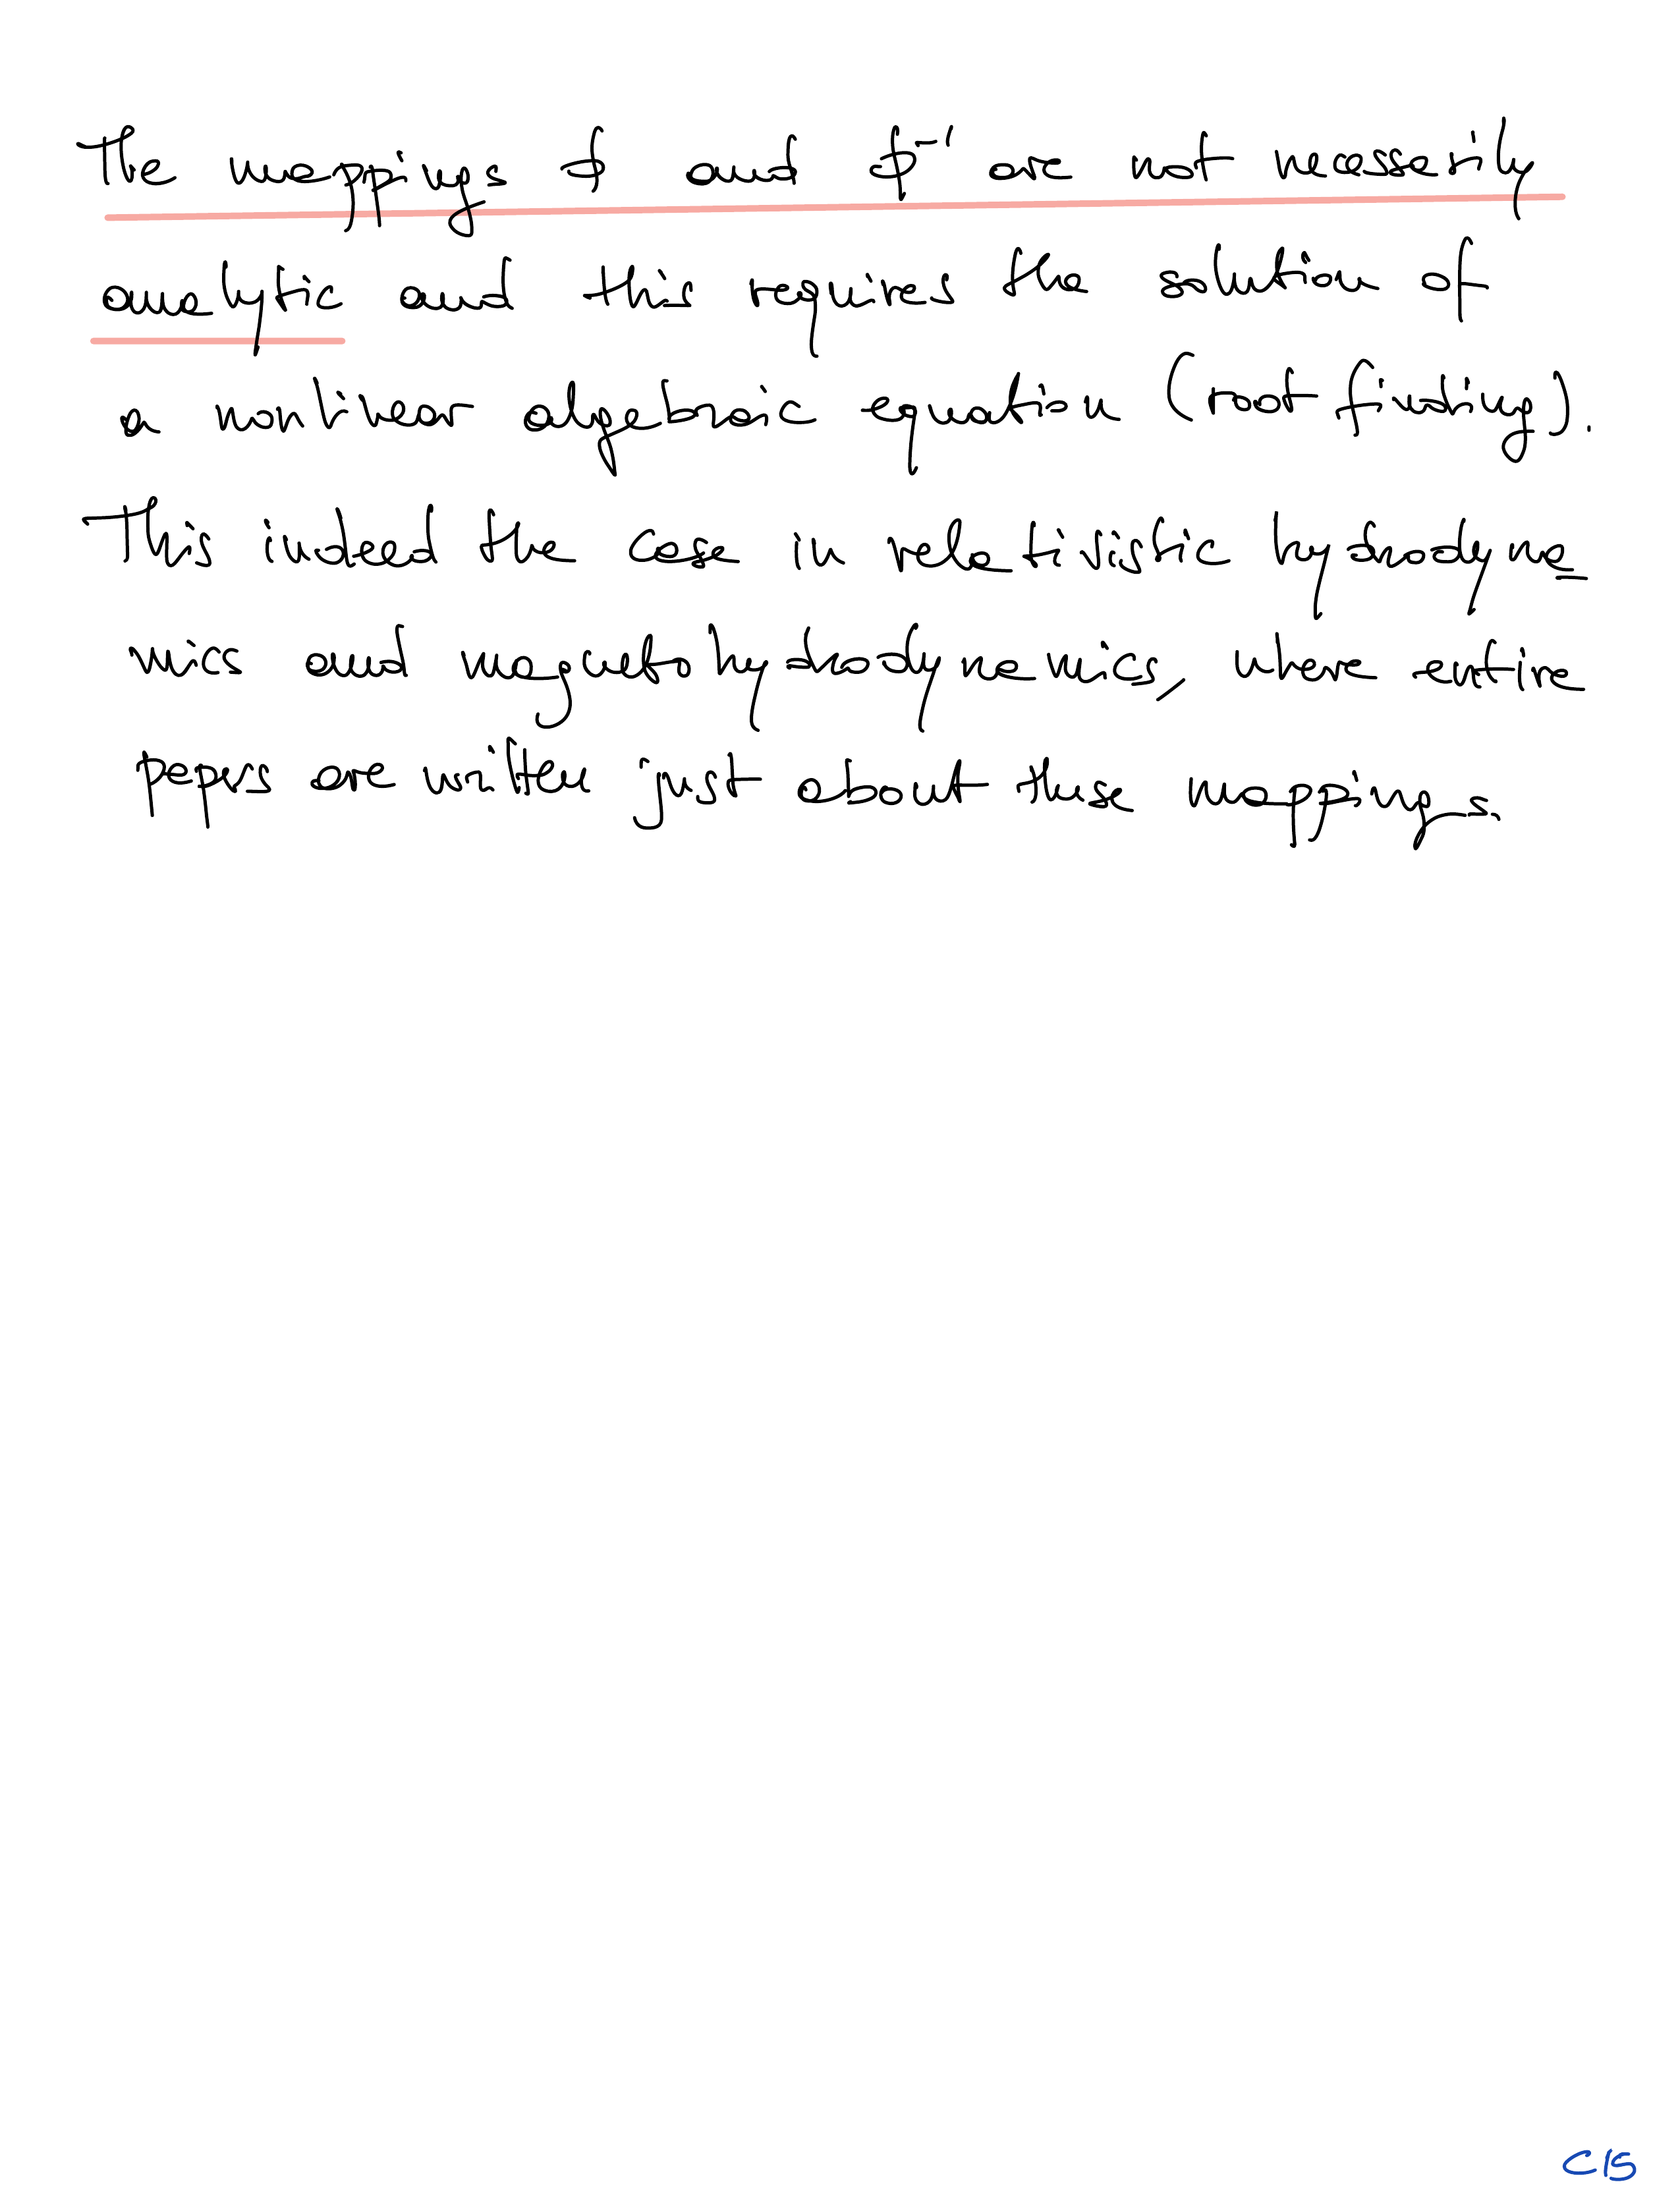 The mappings ϕ and ϕ⁻¹ are not necessarily
analytic and this requires the solution of
a nonlinear algebraic equation (root finding).
This indeed the case in relativistic hydrodyna
mics and magnetohydrodynamics, where entire
papers are written just about these mappings.
C15